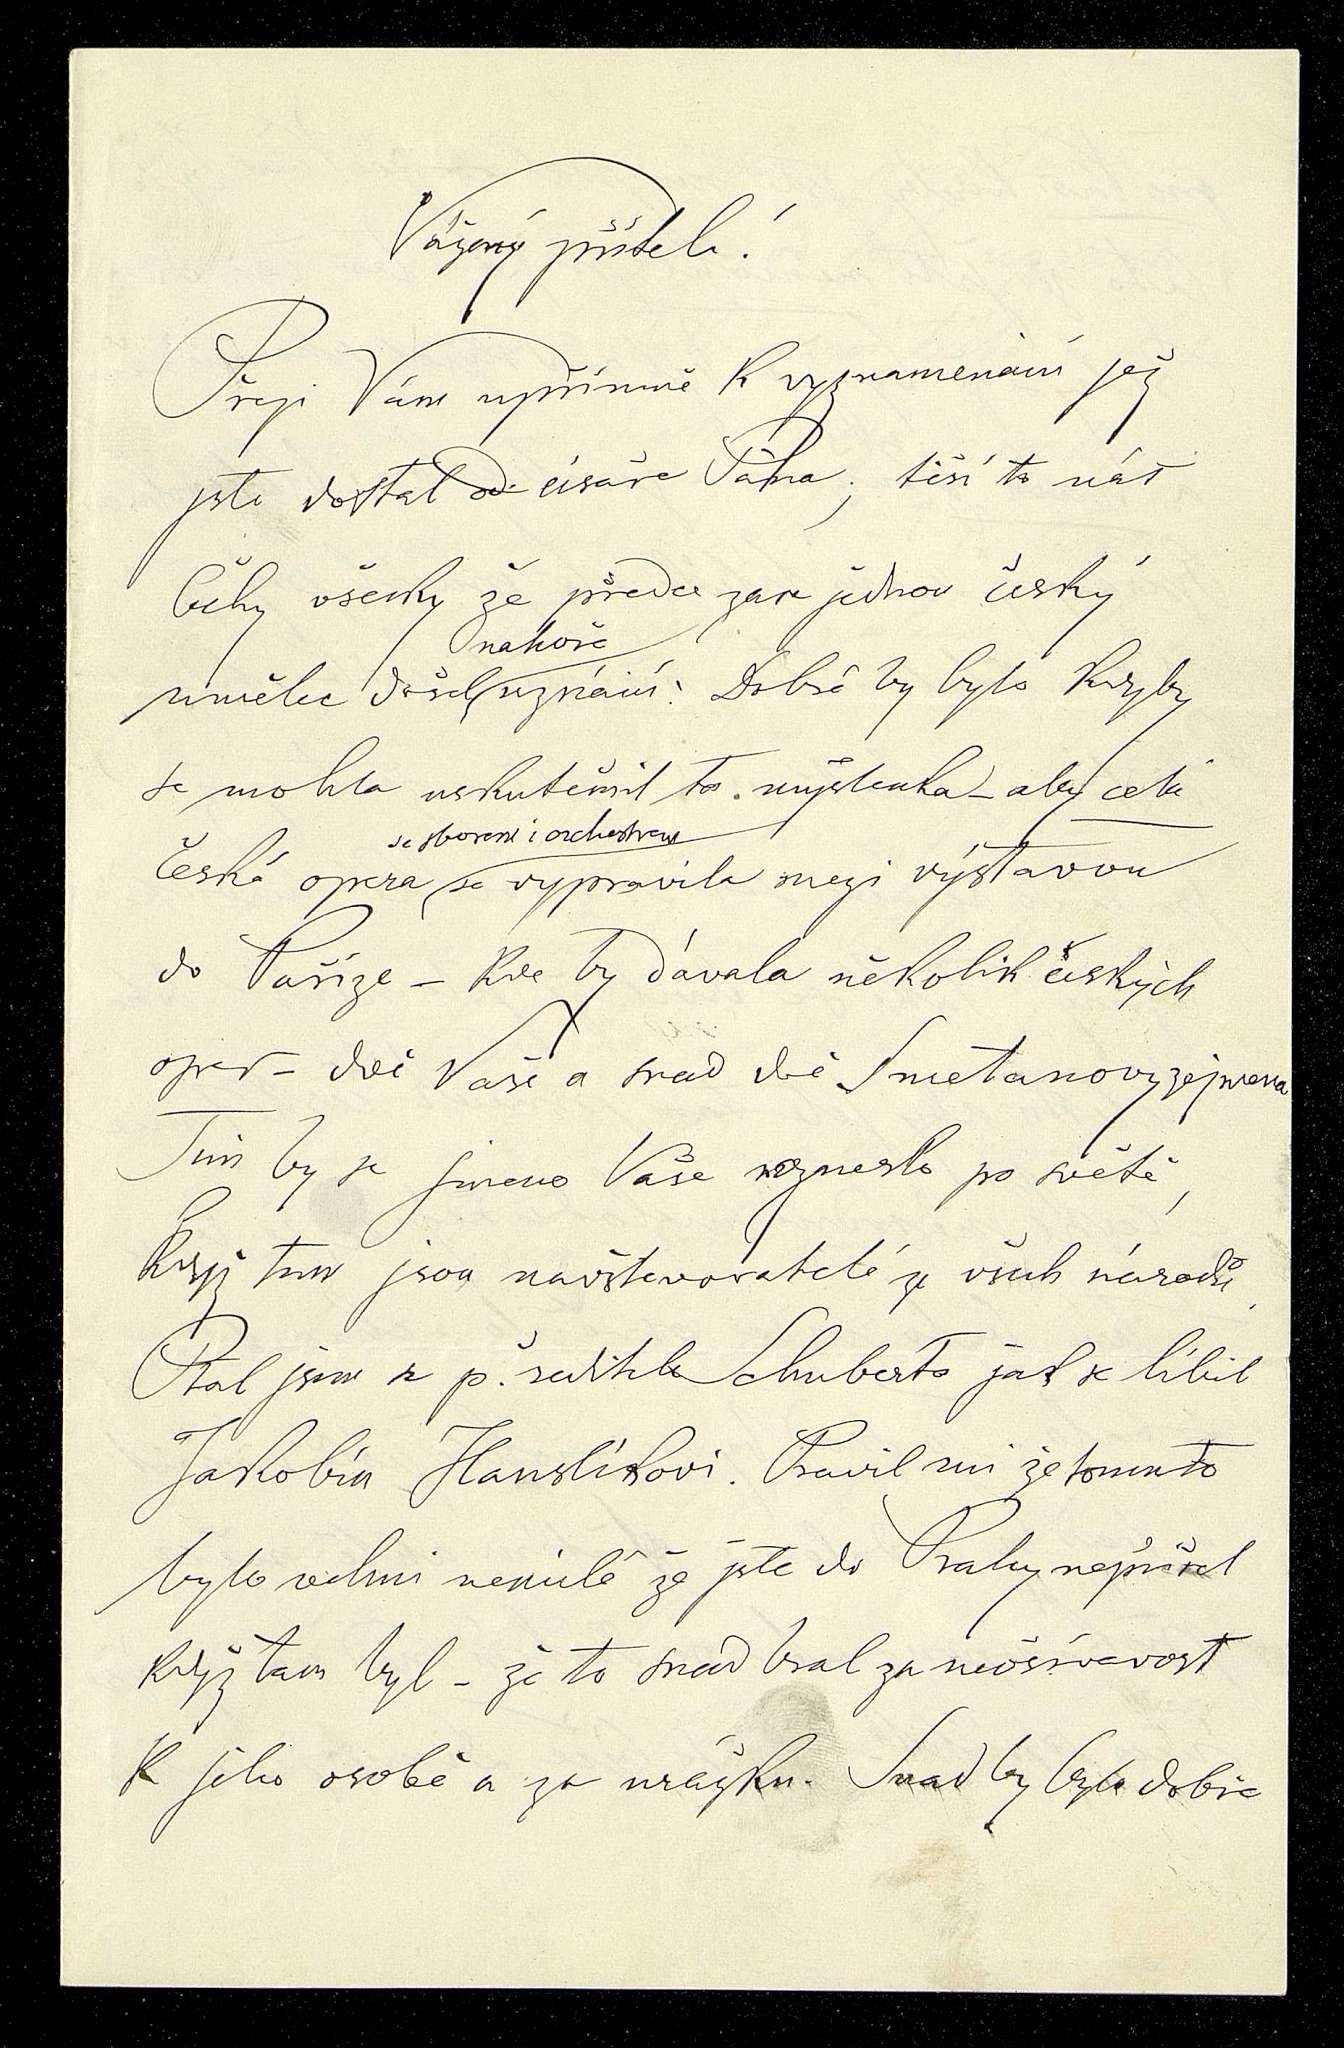 Vážený příteli!
Přeji Vám upřímně k vyznamenání jež
jste dostal od císaře Pána; těší to nás
Čechy všecky že předce zase jednou český
nahoře
umělec došel uznání. Dobré by bylo kdyby
se mohla uskutečnit ta myšlenka – aby celá
se sborem i orchestrem
česká opera se vypravila mezi výstavou
do Paříže – kde by dávala několik českých
oper – dvě Vaše a snad dvě Smetanovy zejmena
Tím by se jmeno Vaše rozneslo po světě,
když tam jsou navštevovatelé ze všech národů.
Ptal jsem se p. ředitele Schuberta jak se líbil
Jakobín Hanslíkovi. Pravil mi že tomuto
bylo velmi nemilé že jste do Prahy nepřišel
když tam byl – že to snad bral za nevšívavost
k jeho osobě a za urážku. Snad by bylo dobře